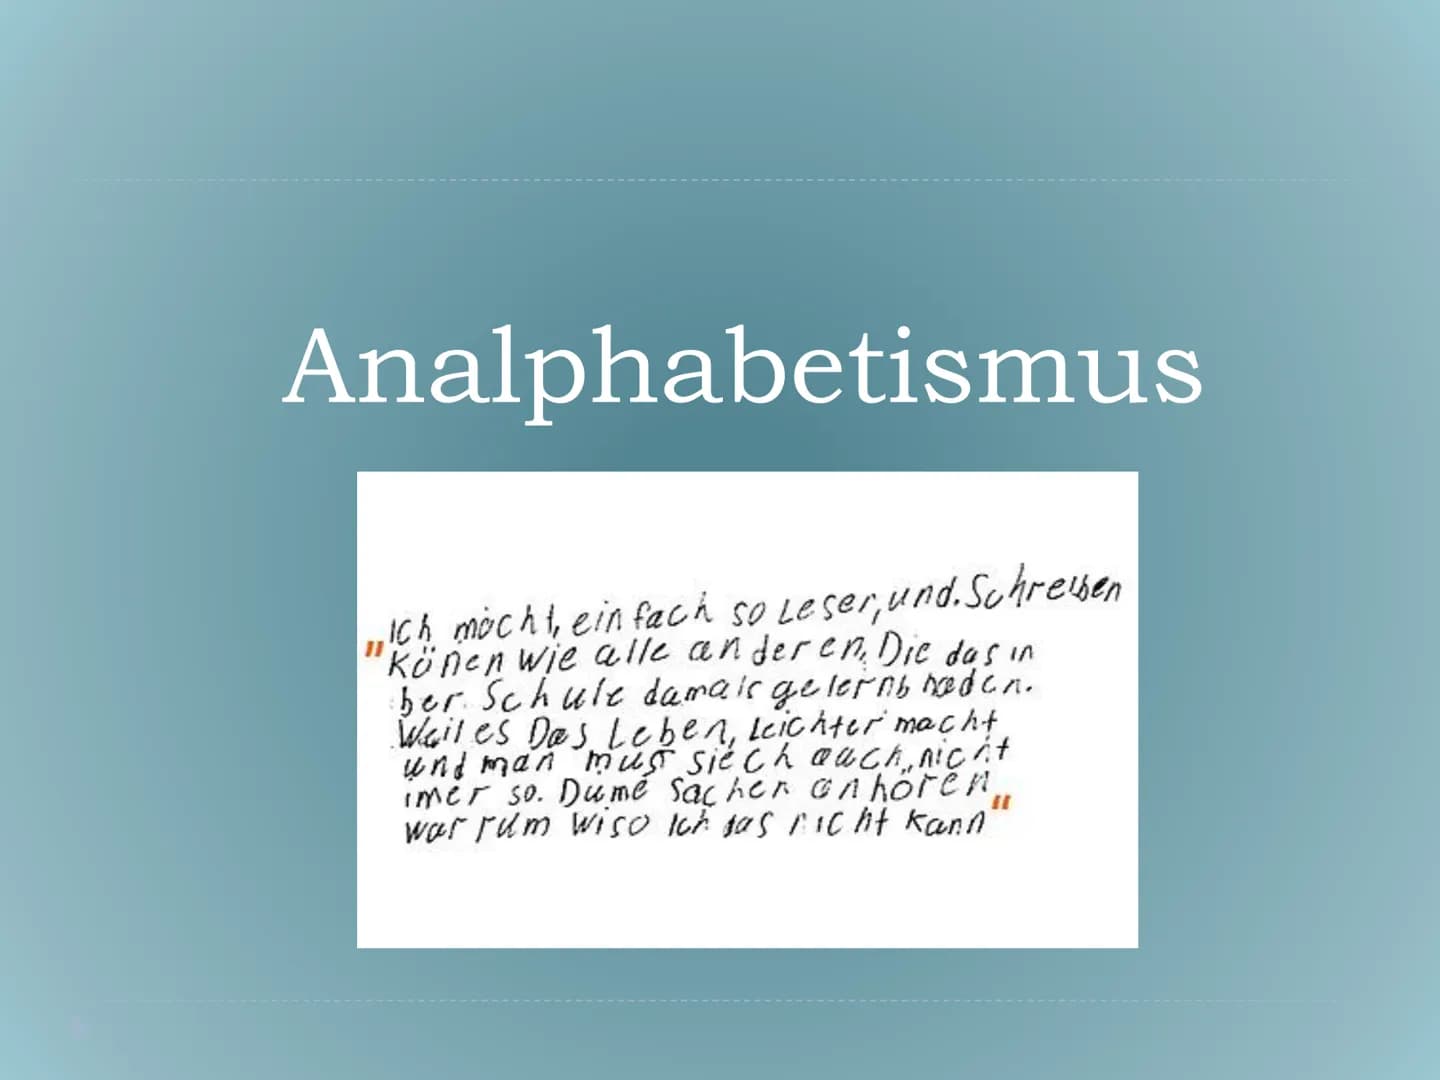 Analphabetismus
Ich möcht, einfach so Leser, und. Schreiben
"Könen wie alle anderen, Die das in
ber. Schule damals gelernb haden.
Weil es Das Leben, Leichter macht
und man muss siech auch, nicht
imer so. Dume Sachen anhören"
war rum wiso Ich das nicht kann